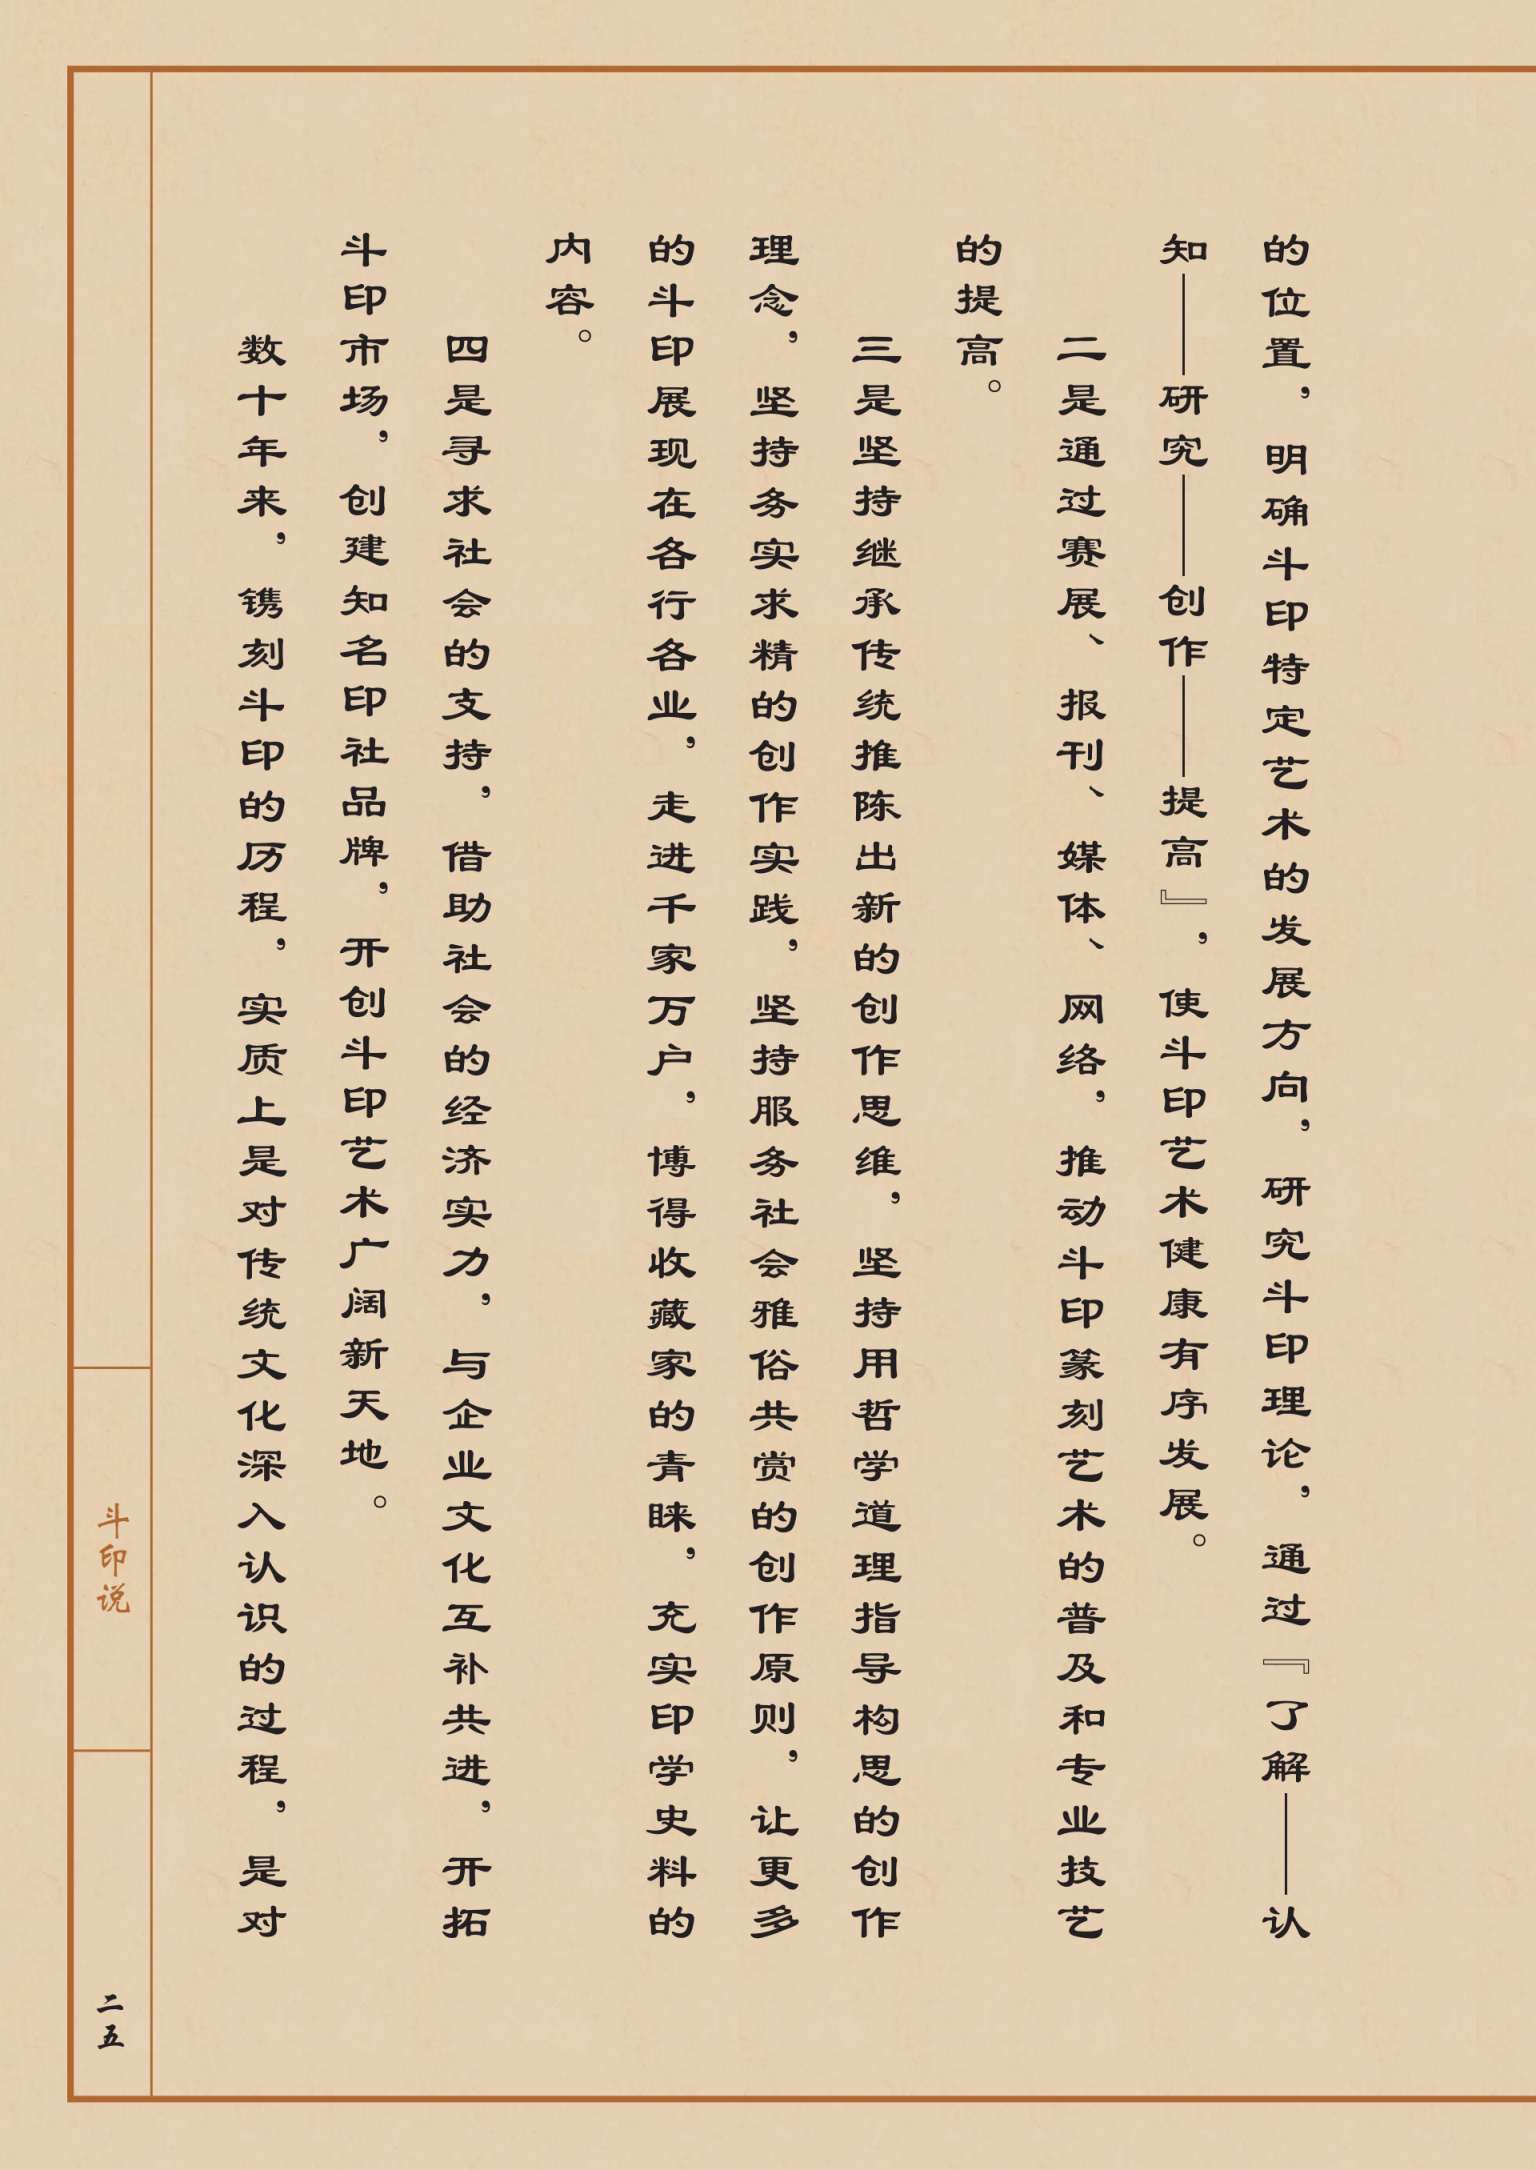 的位置，明确斗印特定艺术的发展方向，研究斗印理论，通过『了解——认
知——研究——创作——提高』，使斗印艺术健康有序发展。
二是通过赛展、报刊、媒体、网络，推动斗印篆刻艺术的普及和专业技艺
的提高。
三是坚持继承传统推陈出新的创作思维，坚持用哲学道理指导构思的创作
理念，坚持务实求精的创作实践，坚持服务社会雅俗共赏的创作原则，让更多
的斗印展现在各行各业，走进千家万户，博得收藏家的青睐，充实印学史料的
内容。
四是寻求社会的支持，借助社会的经济实力，与企业文化互补共进，开拓
斗印市场，创建知名印社品牌，开创斗印艺术广阔新天地。
数十年来，镌刻斗印的历程，实质上是对传统文化深入认识的过程，是对
斗印说
二五